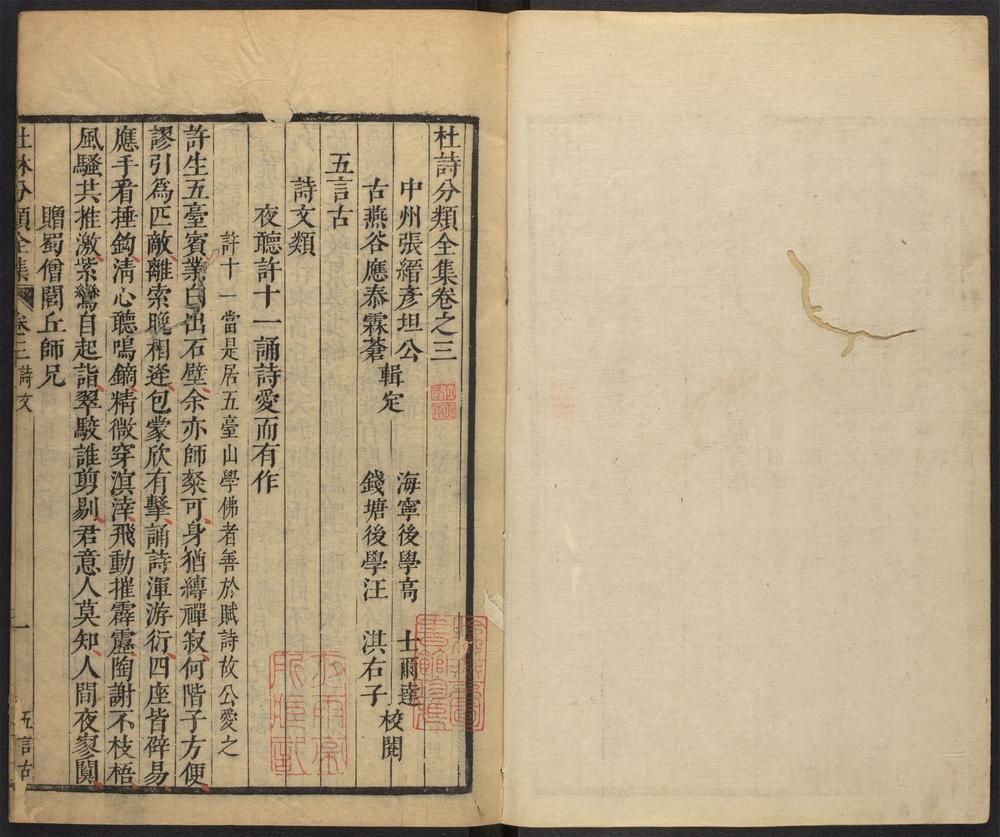 杜詩分類全集卷之三
中州張縉彥坦公
古燕谷應泰霖蒼
輯定
海寧後學高士爾達
錢塘後學汪淇右子
校閱
五言古
詩文類
夜聽許十一誦詩愛而有作
許十一當是居五臺山學佛者善於賦詩故公愛之
許生五臺賓業白出石壁余亦師粲可身猶縛禪寂何階子方便
謬引為匹敵離索晚相逢包蒙欣有擊誦詩渾游衍四座皆辟易
應手看捶鈎淸心聽鳴鏑精微穿溟涬飛動摧霹靂陶謝不枝梧
風騷共推激紫鸞自起詣翠駮誰剪剔君意人莫知人間夜寥闃
贈蜀僧閭丘師兄
杜林分類全集
卷三
詩文
一
五言古